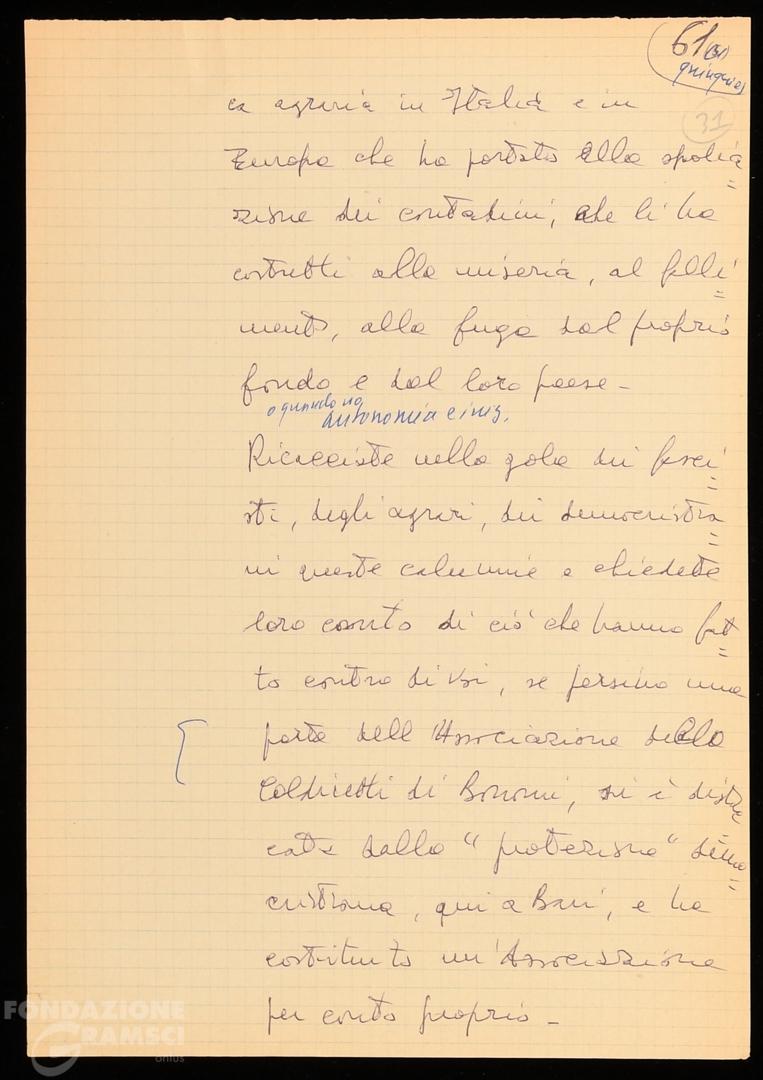 61(31)
quinquies
31
ca agraria in Italia e in
Europa che ha portato alla spolia=
zione dei contadini, che li ha
costretti alla miseria, al falli=
mento, alla fuga dal proprio
fondo e dal loro paese -
ognuno
autonomia
Ricacciate nella gola dei fasci=
sti, degli agrari, dei democristia=
ni queste calunnie e chiedete
loro conto di ciò che hanno fat=
to contro di voi, se persino una
parte dell'Associazione della
Coldiretti di Bonomi, si è distac=
cata dalla "protezione" demo=
cristiana, qui a Bari, e ha
costituito un'Associazione
per conto proprio -
FONDAZIONE
GRAMSCI
onlus